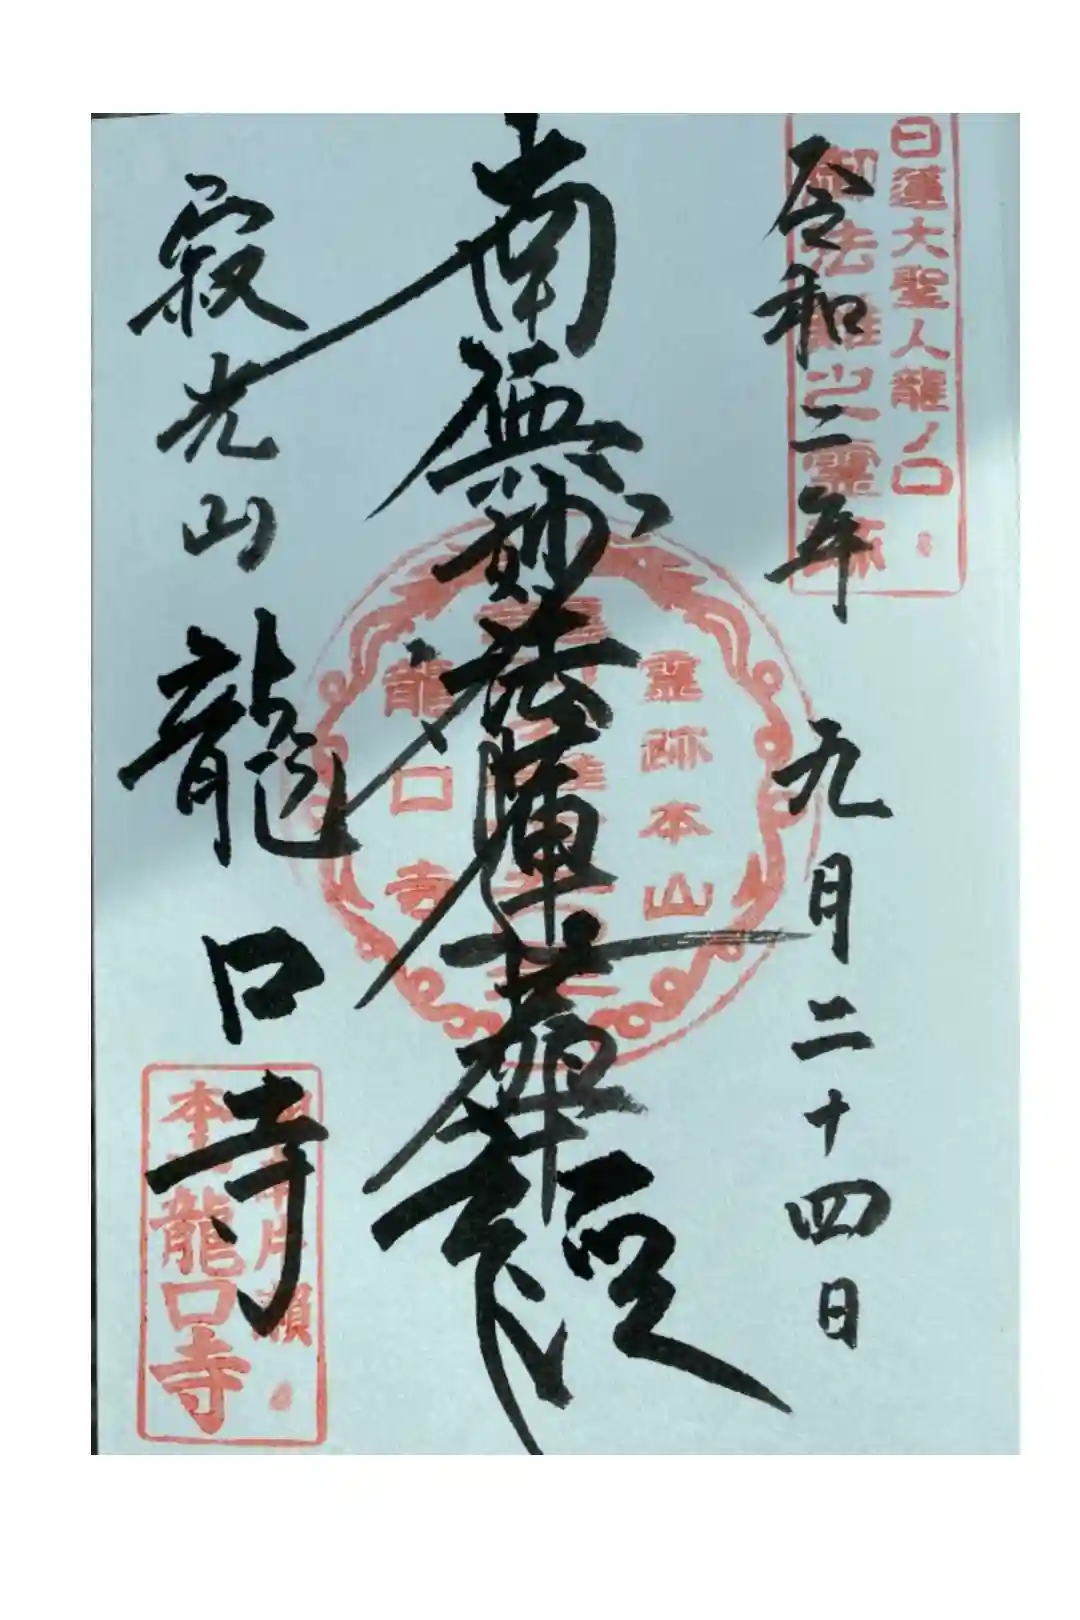 日蓮大聖人龍ノ口
御法難之霊跡
令和二年九月二十四日
南無妙法蓮華経
霊跡本山
龍口寺
寂光山龍口寺
片瀬
本山龍口寺